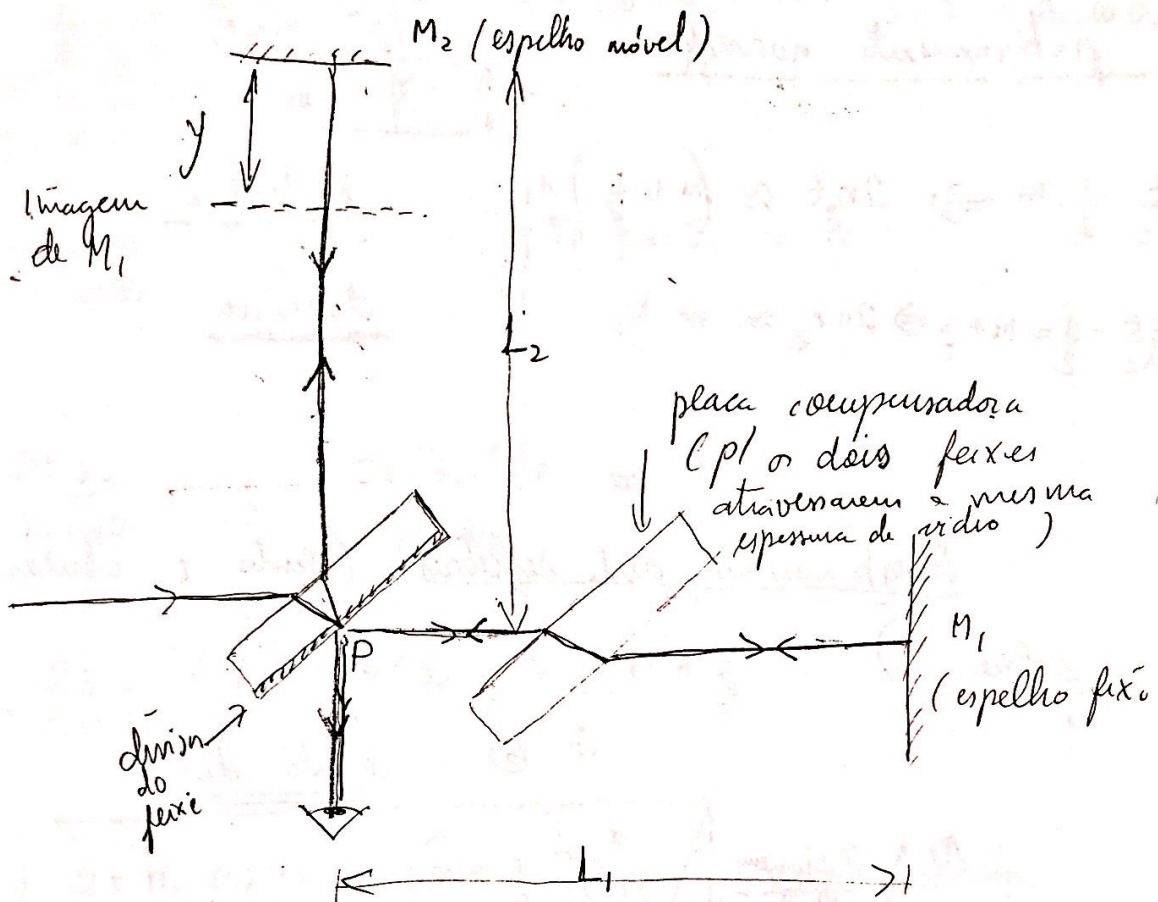 M₂ (espelho móvel)
y
Imagem
de M₁
L₂
placa compensadora
(p/ os dois feixes
atravessarem a mesma
espessura de vidro)
P
M₁
(espelho fixo
divisor
do
feixe
L₁